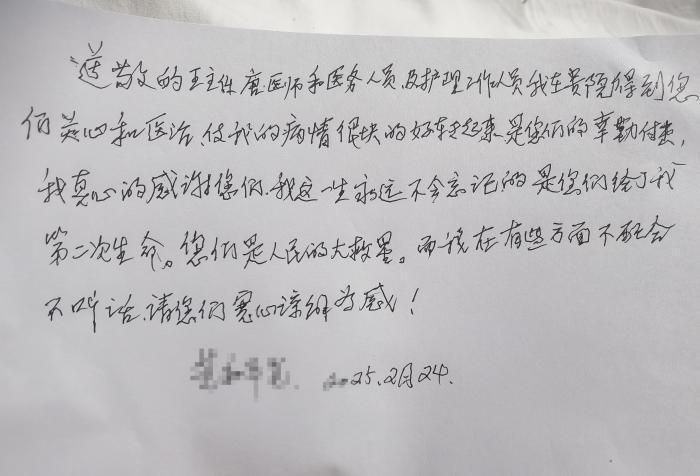 遵敬的王主任唐医师和医务人员及护理工作人员我在贵院得到您
们关心和医治、使我的病情很快的好转起来是您们的辛勤付出,
我真心的感谢您们.我这一生永远不会忘记的是您们给了我
第二次生命。您们是人民的大救星。而我在有些方面不配合
不听话.请您们宽心谅解为感!
2025.2月24.